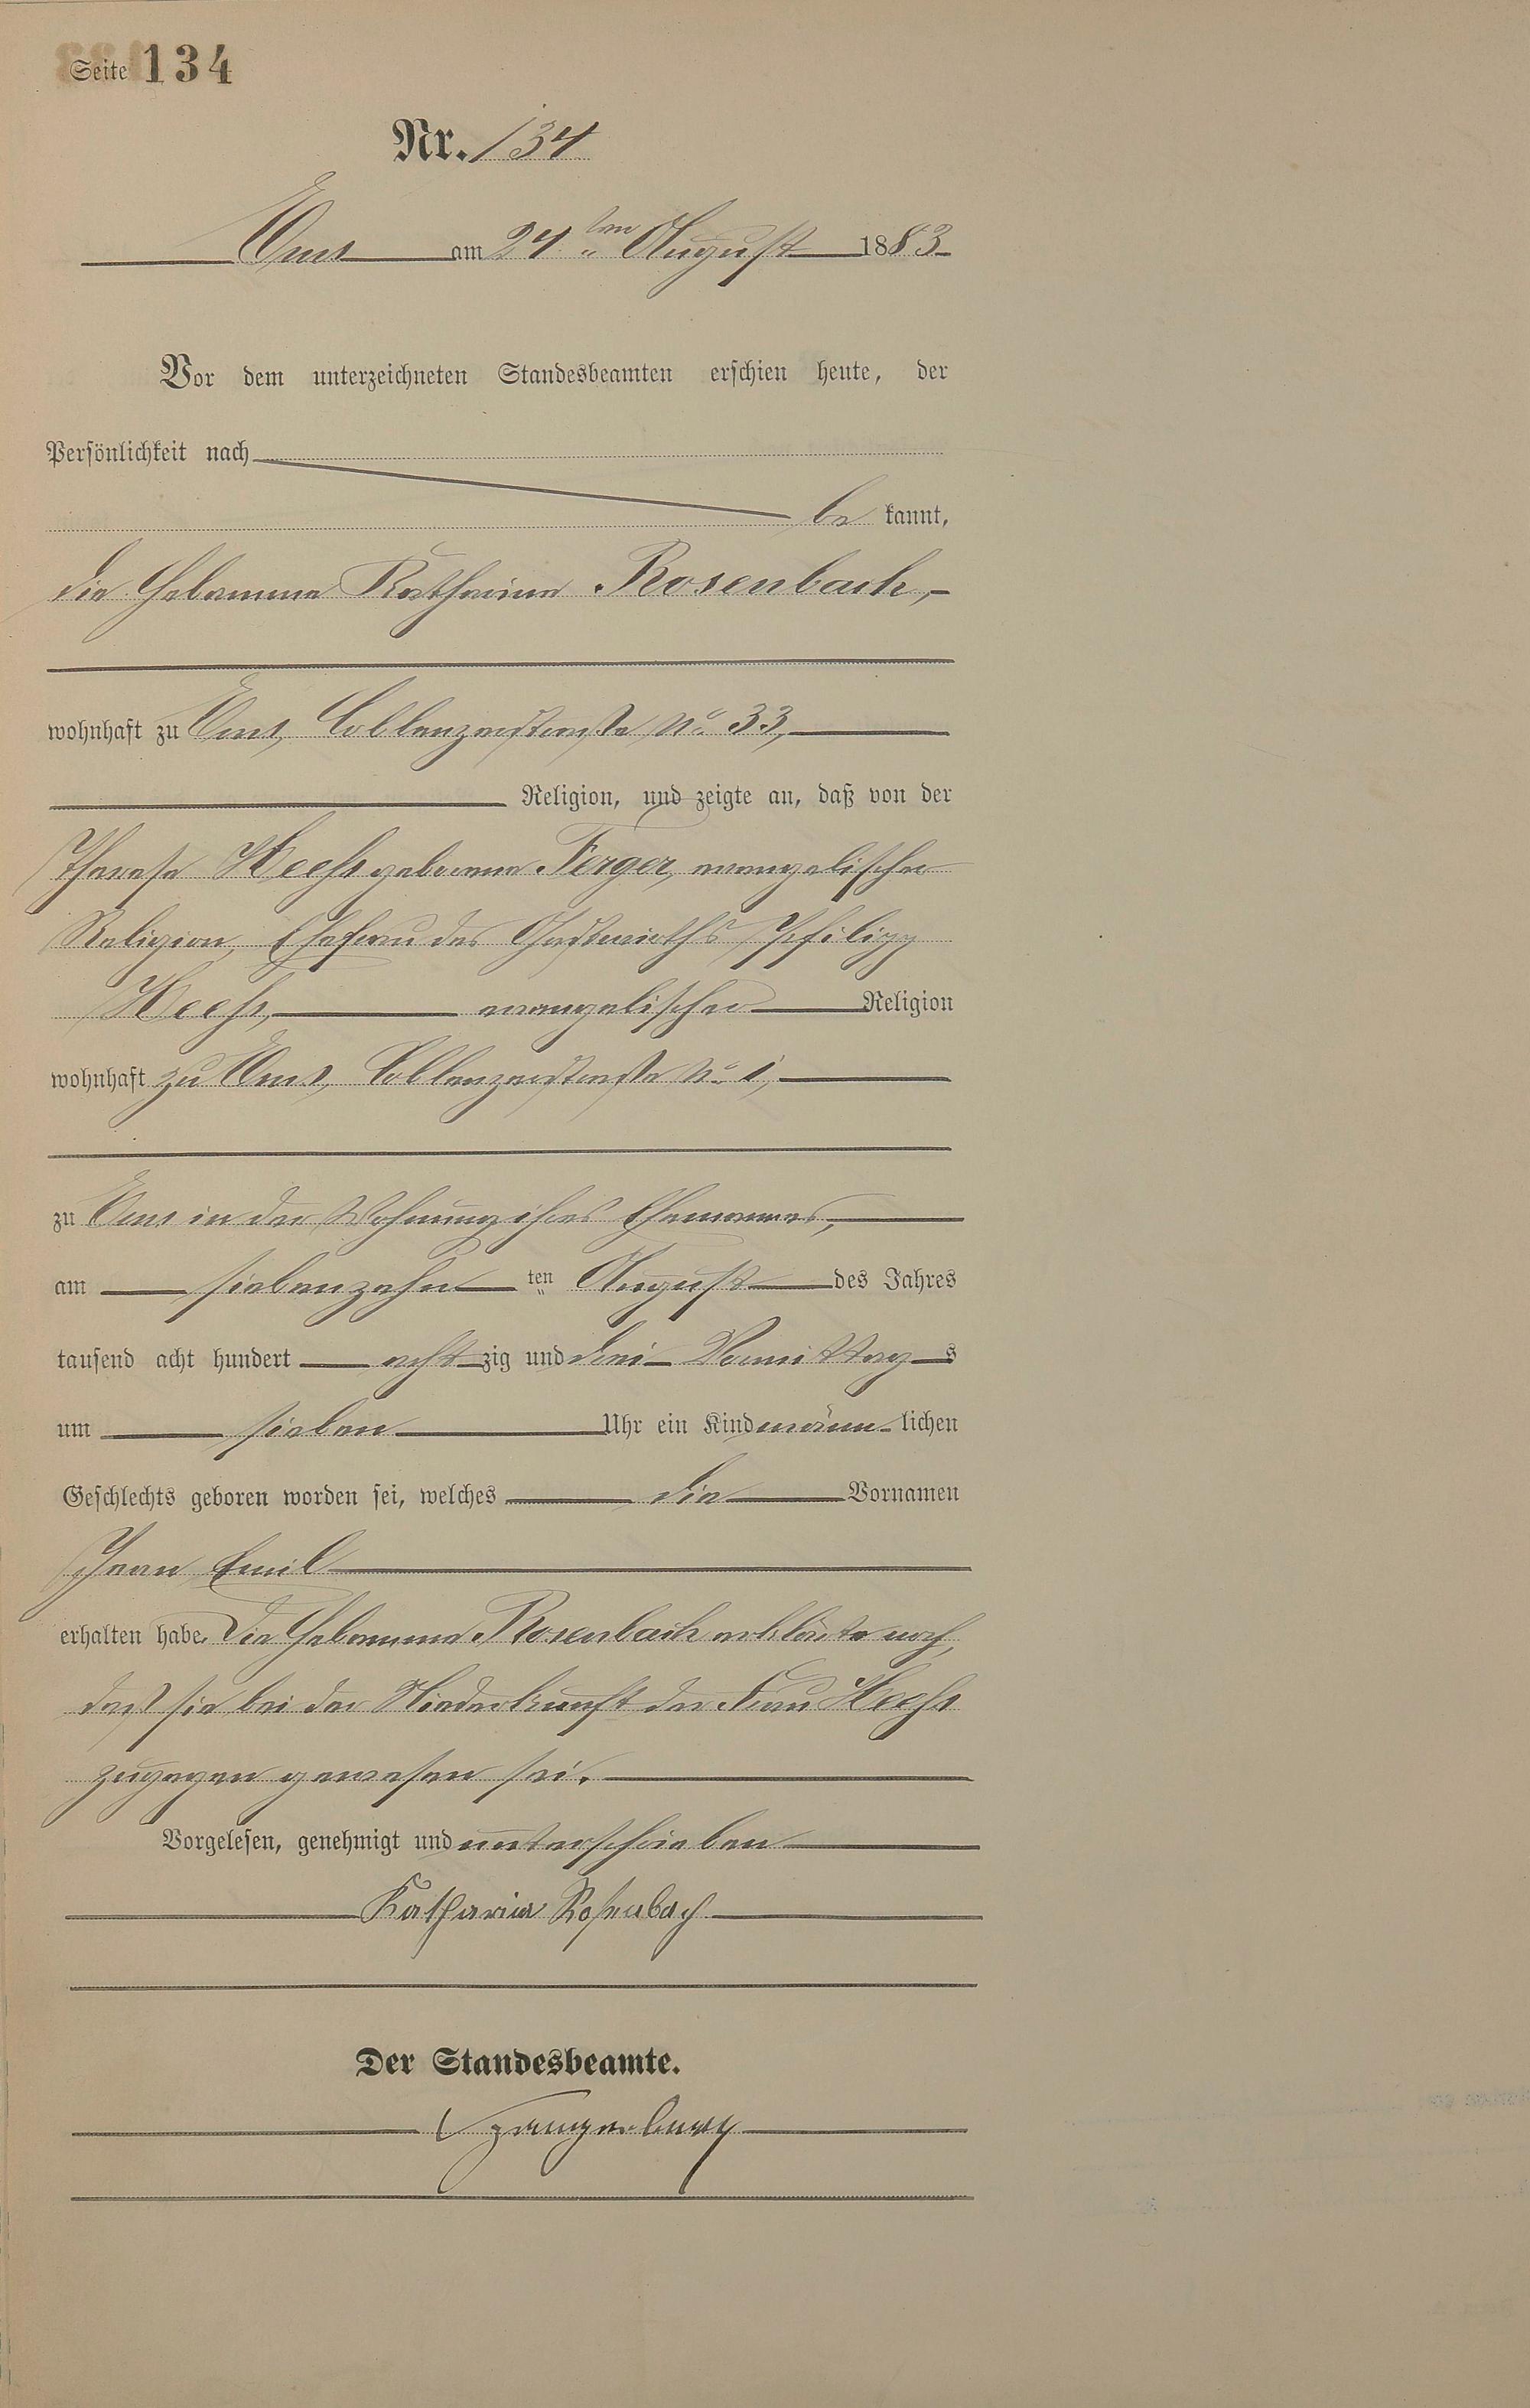 Seite 134
Nr. 134
Ems am 24ten August 1883
Vor dem unterzeichneten Standesbeamten erschien heute, der
Persönlichkeit nach
be kannt,
die Hebamme Katharina Rosenbach,
wohnhaft zu Ems, Coblenzerstraße No. 33,
Religion, und zeigte an, daß von der
Therese geborene Ferger, evangelischer
Religion, Ehefrau des Gastwirths Philipp
evangelischer Religion
wohnhaft zu Ems, Coblenzerstraße No. 1,
zu Ems in der Wohnung ihres Ehemannes,
am siebenzehn ten August des Jahres
tausend acht hundert acht zig und drei Vormittag s
um sieben Uhr ein Kind männ lichen
Geschlechts geboren worden sei, welches die Vornamen
Jean Emil
erhalten habe. Die Hebamme Rosenbach erklärte noch,
daß sie bei der Niederkunft der Frau
zugegen gewesen sei.
Vorgelesen, genehmigt und unterschrieben
Katharina Rosenbach
Der Standesbeamte.